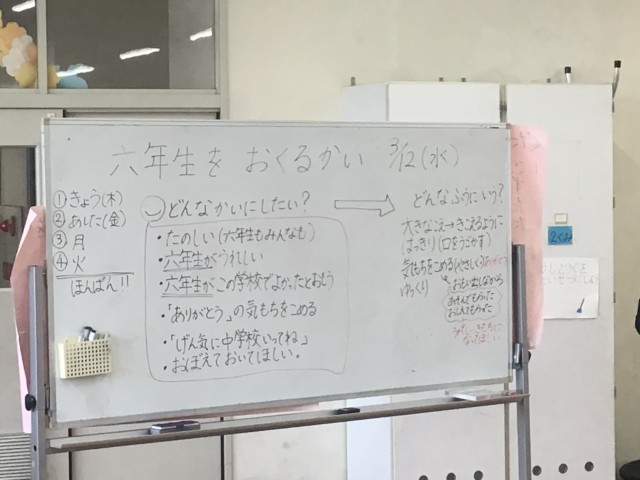 六年生を おくるかい 3/12(水)
①きょう(木)
②あした(金)
③ 月
④ 火
ほんばん!!
どんなかいにしたい?
・たのしい(六年生もみんなも)
・六年生がうれしい
・六年生がこの学校でよかったとおもう
・「ありがとう」の気もちをこめる
・「げん気に中学校いってね」
おぼえておいてほしい。
どんなふうにいう?
大きなこえ→きこえるように
はっきり(口をうごかす)
気もちをこめる(やさしく)
ゆっくり
おもい出しながら
2くみ